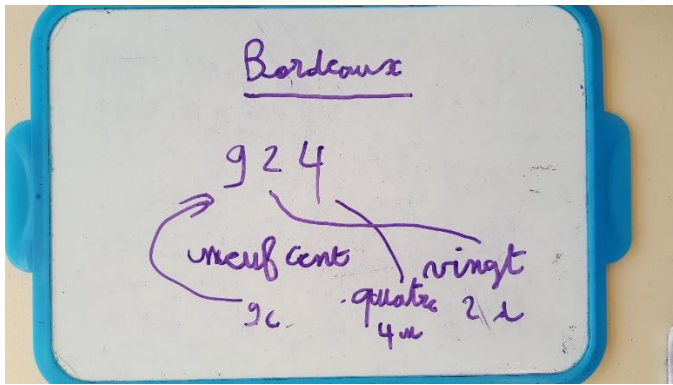 Bordeaux
924
neuf cent vingt
quatre
9c 4u 2 d